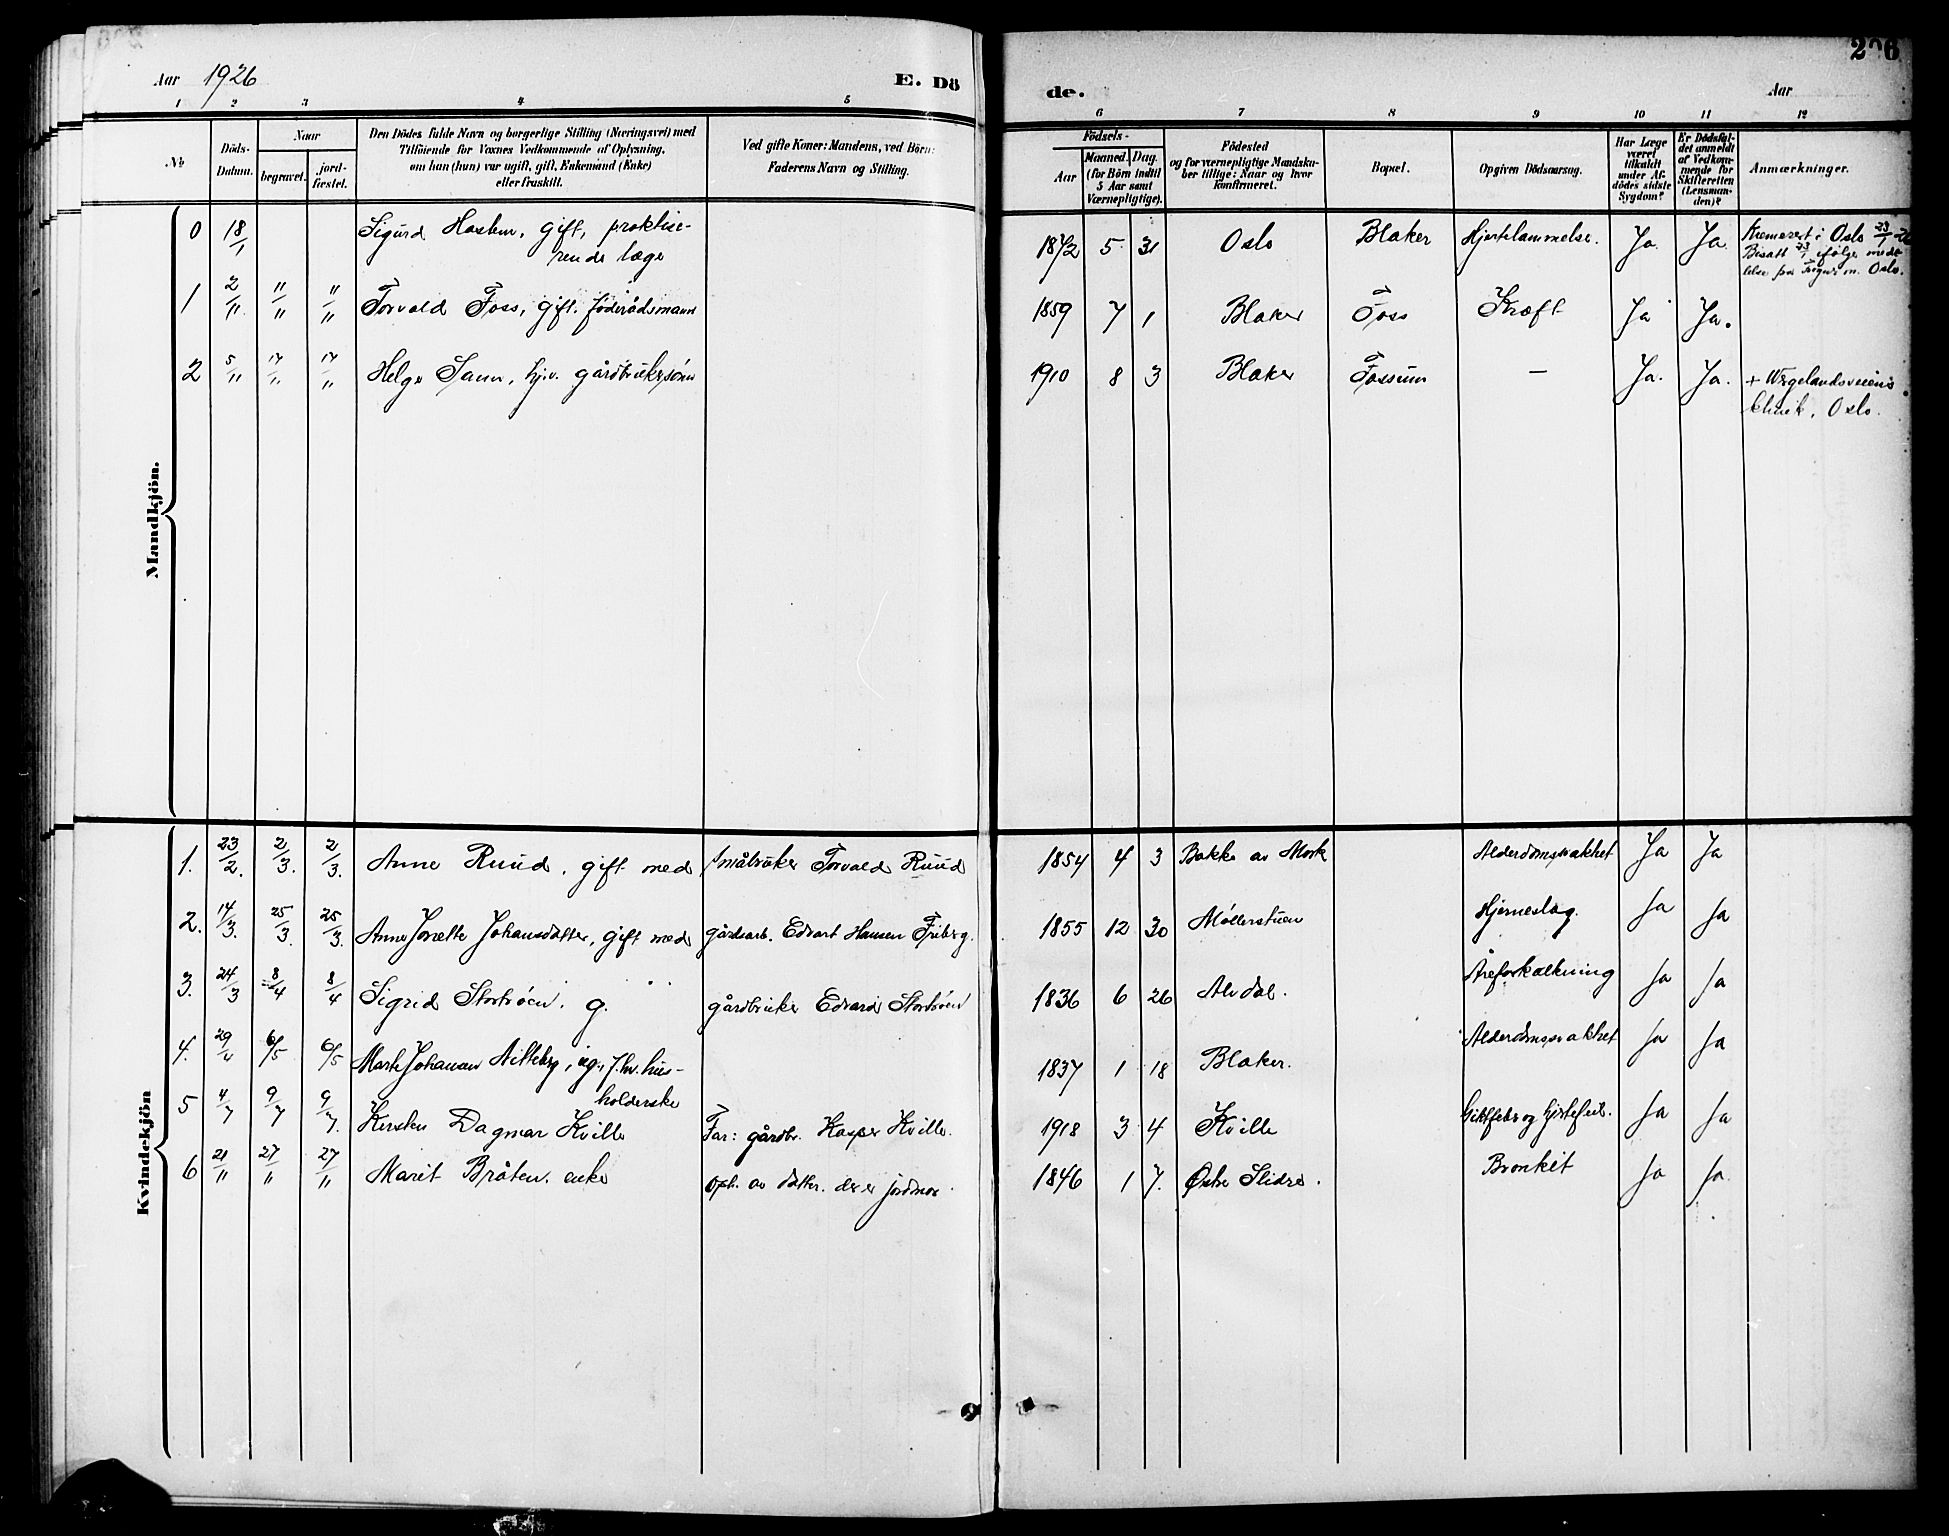 Aar 1926 E. Dö de. Aar 206
1 2 3 4 5 6 7 8 9 10 11 12
No
Döds-Datum.
Naar
begravet.
jord-fæstet.
Den Dödes fulde Navn og borgerlige Stilling (Næringsvei) med
Tilföiende for Voxnes Vedkommende af Oplysning,
om han (hun) var ugift, gift, Enkemand (Enke)
eller fraskilt.
Ved gifte Koner: Mandens, ved Börn:
Faderens Navn og Stilling.
Födsels-
Aar
Maaned. Dag.
(for Börn indtil
5 Aar samt
Værnepligtige).
Födested
og for værnepligtige Mandska-
ber tillige: Naar og hvor
konfirmeret.
Bopæl.
Opgiven Dödsaarsag.
Har Læge
været
tilkaldt
under Af-
dödes sidste
Sygdom?
Er Dödsfal-
det anmeldt
af Vedkom-
mende for
Skifteretten
(Lensman-
den)?
Anmærkninger.
Mandkjön.
0 18/1 Sigurd Haslem, gift, praktise- 1872 5 31 Oslo Blaker Hjertelammelse. Ja. Ja. Kremert i Oslo 23/1-26
rende læge
Bisatt 23/1 ifølge medde-
lelse fra m. Oslo.
1 2/11 " " " " Torvald Foss, gift. föderådsmann 1859 7 1 Blaker Foss Kræft Ja Ja.
2 5/" 17/" 17/" Helge Saum, hjv. gårdbrukersönn 1910 8 3 Blaker Fossum — Ja. Ja. + Wergelandsveiens
klinik, Oslo.
Kvindekjön
1. 23/2. 2/3. 2/3. Anne Ruud, gift med småbruker Torvald Ruud 1854 4 3 Bakke av Mork Alderdomssvakhet Ja Ja
2. 14/3. 25/3. 25/3. Anne Josette Johansdatter, gift med gårdsarb. Edvart Hansen Friberg. 1855 12 30 Møllerstuen Hjerneslag. Ja Ja
3. 24/3 8/4 8/4 Sigrid Stortröen. g. " " gårdbruker Edvard Stortröen 1836 6 26 Alvdal. Åreforkalkning Ja Ja
4. 29/4 6/5 6/5 Marte Johanna ug., f.hv. hus- 1837 1 18 Blaker. Alderdomssvakhet Ja Ja
holderske
5 4/7 9/7 9/7. Kersten Dagmar Kville Far: gårdbr. Kasper Kville. 1918 3 4 Kville Giktfeber og hjertefeil. Ja Ja
6 21/" 27/" 27/" Marit Bråten. enke opl. av datter. der er jordmor. 1846 1 7. Østre Slidre. Bronkit Ja Ja.